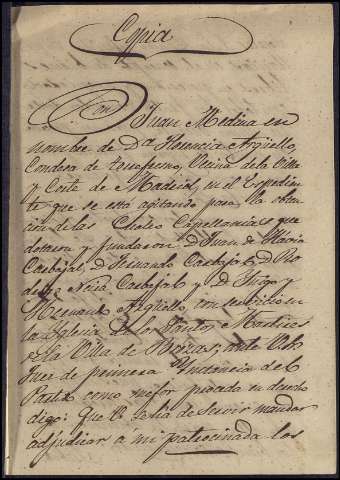 Copia
Don Juan Medina en
nombre de D.ª Florencia Argüello,
Condesa de Vecina de la Villa
y Corte de Madrid, en el Expedien
te que se está agitando para la obten
cion de las Capellanias que
dotaron y fundaron D. Juan de Neira
Carbajal, D. Fernando Carbajal, D. Ro
de Neira Carbajal y D. Diego y
Argüello, con servicio en
la Iglesia de los Santos Martires
de la Villa de Brozas, ante Vd.
Juez de primera Instancia de
Partido como mejor proceda en derecho
digo: Que se ha de servir mandar
adjudicar á mi patrocinada los